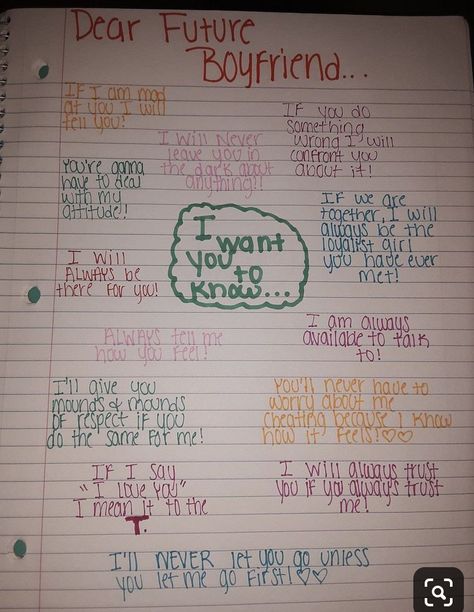 Dear Future
Boyfriend...
If I am mad
at you I will
tell you!
I will never
leave you in
the dark about
anything!!
If you do
something
wrong I will
confront you
about it!
You're gonna
have to deal
with my
attitude!!
If we are
together, I will
always be the
loyalist girl
you have ever
met!
I want
you to
know...
I will
ALWAYS be
there for you!
ALWAYS tell me
how you feel!
I am always
available to talk
to!
I'll give you
mounds & mounds
of respect if you
do the same for me!
You'll never have to
worry about me
cheating because I know
how it feels!♡♡
If I say
"I love you"
I mean it to the
T.
I will always trust
you if you always trust
me!
I'll NEVER let you go unless
you let me go first!♡♡